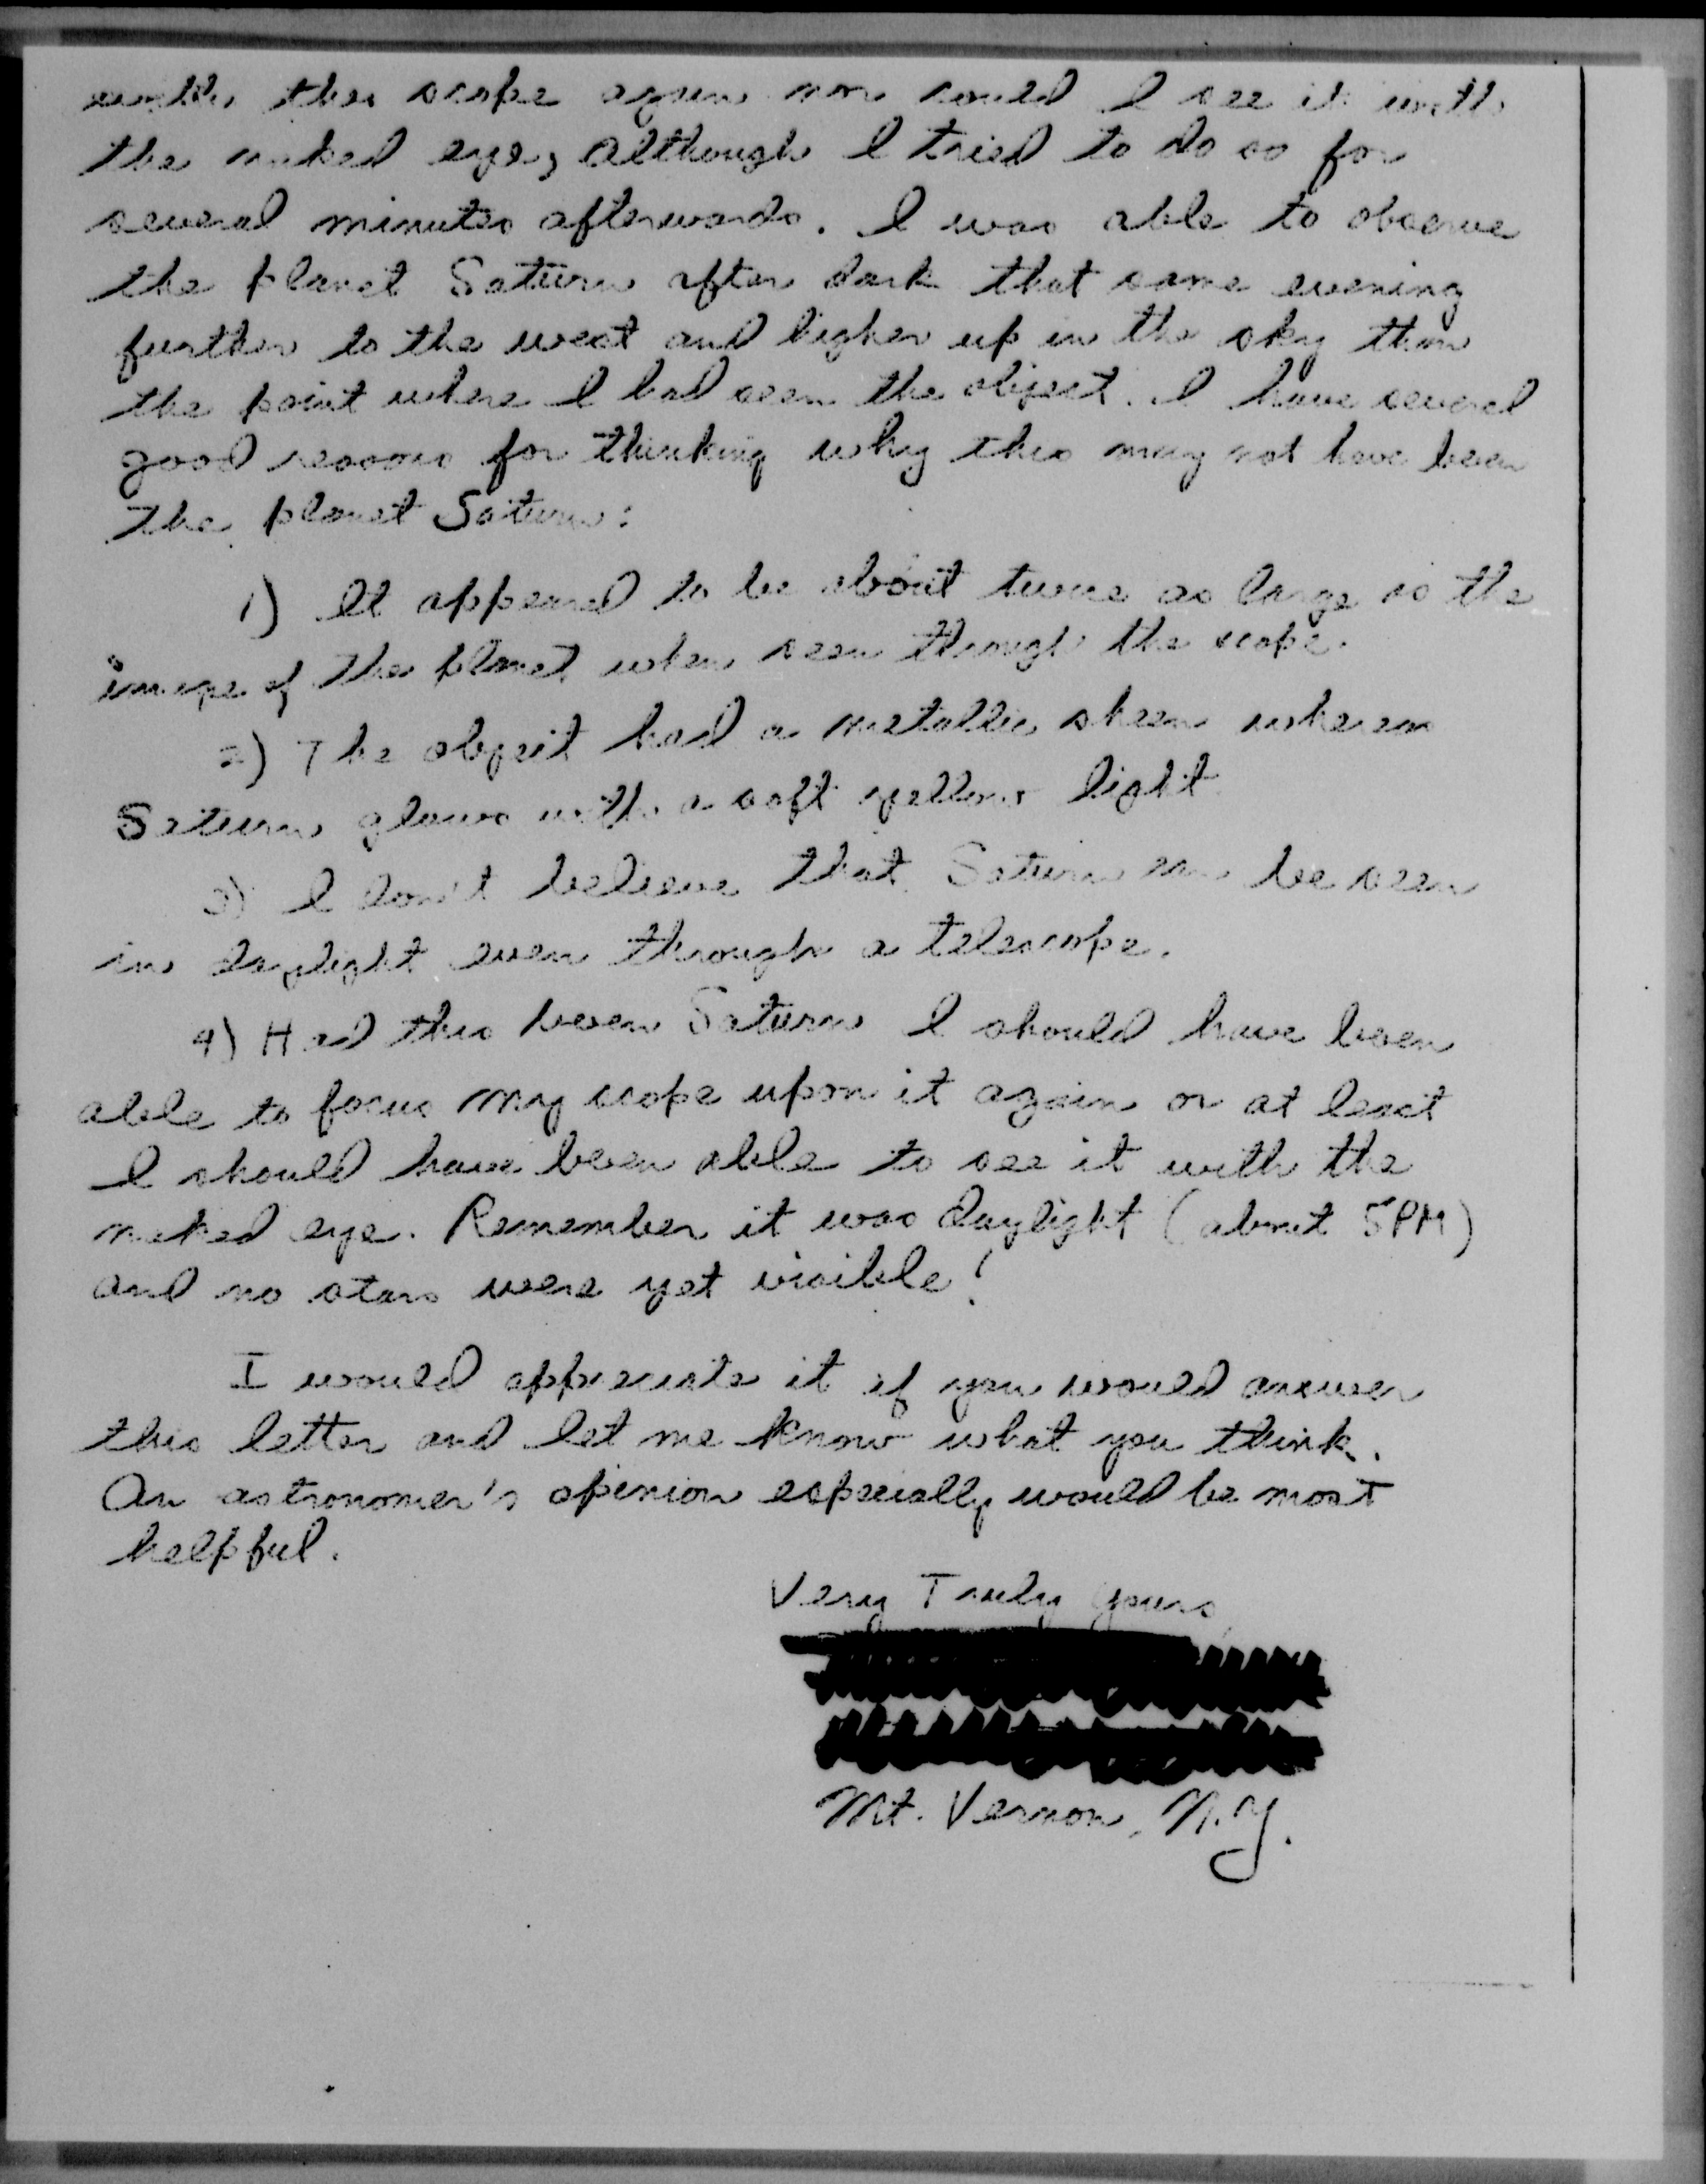 with the scope again nor could I see it with
the naked eye, although I tried to do so for
several minutes afterwards. I was able to observe
the planet Saturn after dark that same evening
further to the west and higher up in the sky than
the point where I had seen the object. I have several
good reasons for thinking why this may not have been
the planet Saturn:
1) It appeared to be about twice as large as the
image of the planet when seen through the scope.
2) The object had a metallic sheen whereas
Saturn glows with a soft yellow light.
3) I don't believe that Saturn can be seen
in daylight even through a telescope.
4) Had this been Saturn I should have been
able to focus my scope upon it again or at least
I should have been able to see it with the
naked eye. Remember it was daylight (about 5PM)
and no stars were yet visible!
I would appreciate it if you would answer
this letter and let me know what you think.
An astronomer's opinion especially would be most
helpful.
Very Truly Yours,
Mt. Vernon, N.Y.